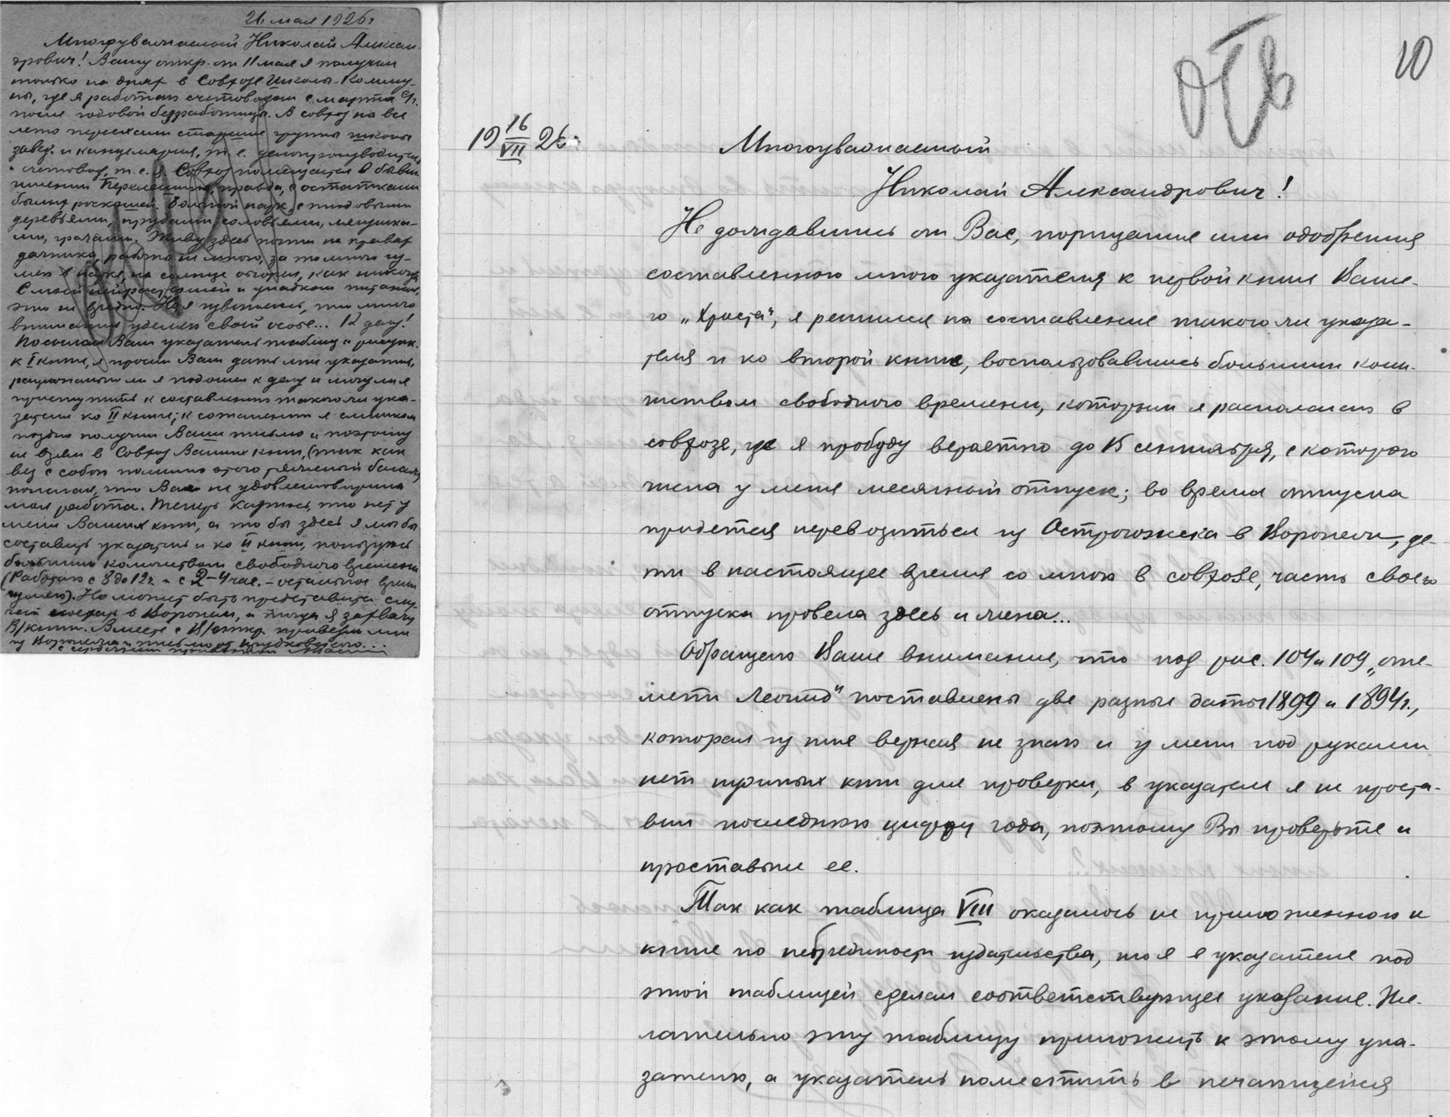 26 мая 1926 г
Многоуважаемый Николай Алексан-
дрович! Вашу откр. от 11 мая я получил
только на днях в Совхозе Школы-Комму-
ны, где я работаю счетоводом с марта с/г.
после годовой безработицы. В совхоз на все
лето переехали старшие группы школы
завед. и канцелярия, т.е. делопроизводитель
и счетовод, т.е. я. Совхоз помещается в бывш.
имении правда, с остатками
былых роскошей. Большой парк с плодовыми
деревьями, прудами, соловьями, лягушка-
ми, грачами. Живу здесь почти на правах
дачника, работаю не много, за то много гу-
ляю в парке, на солнце загорел, как никогда
С моей и упадком питания,
это не вредно. Но я чувствую, что много
внимания уделяю своей особе... К делу!
Посылая Вам указатель таблиц и рисунк.
к I книге, я просил Вам дать мне указания,
рационально ли я подошел к делу и могу ли я
приступить к составлению такого ли ука-
зателя ко II книге; к сожалению я слишком
поздно получил Ваше письмо и поэтому
не взял в Совхоз Ваших книг, (так как
вез с собой помимо этого
полагая, что Вас не удовлетворила
моя работа. Теперь каюсь, что нет у
меня Ваших книг, а то бы здесь я мог бы
составить указатель и ко II книге, пользуясь
большим количеством свободного времени
(Работаю с 8 до 12 ч. и с 2-4 час. - остальное время
гуляю). Но может быть представится слу-
чай съездить в Воронеж, и тогда я захвачу
В/книги. Вместе с В/откр. привезли мне
из Воронежа и письмо от
с сердечным приветом
отв
10
19 16/VII 26 г.
Многоуважаемый
Николай Александрович!
Не дождавшись от Вас, порицания или одобрения
составленного мною указателя к первой книге Ваше-
го „Христа", я решился на составление такого ли указа-
теля и ко второй книге, воспользовавшись большим коли-
чеством свободного времени, которым я располагаю в
совхозе, где я пробуду вероятно до 15 сентября, с которого
числа у меня месячный отпуск; во время отпуска
придется перевозиться из Острогожска в Воронеж, де-
ти в настоящее время со мною в совхозе, часть своего
отпуска провела здесь и жена...
Обращаю Ваше внимание, что под рис. 104 и 109 „эле-
менты Леонид" поставлены две разные даты 1899 и 1894 г.,
которая из них верная не знаю и у меня под руками
нет нужных книг для проверки, в указателе я не проста-
вил последнюю цифру года, поэтому Вы проверьте и
проставьте ее.
Так как таблица VIII оказалось не приложенною к
книге по небрежности издательства, то я в указателе под
этой таблицей сделал соответствующее указание. Же-
лательно эту таблицу приложить к этому ука-
зателю, а указатель поместить в печатающейся